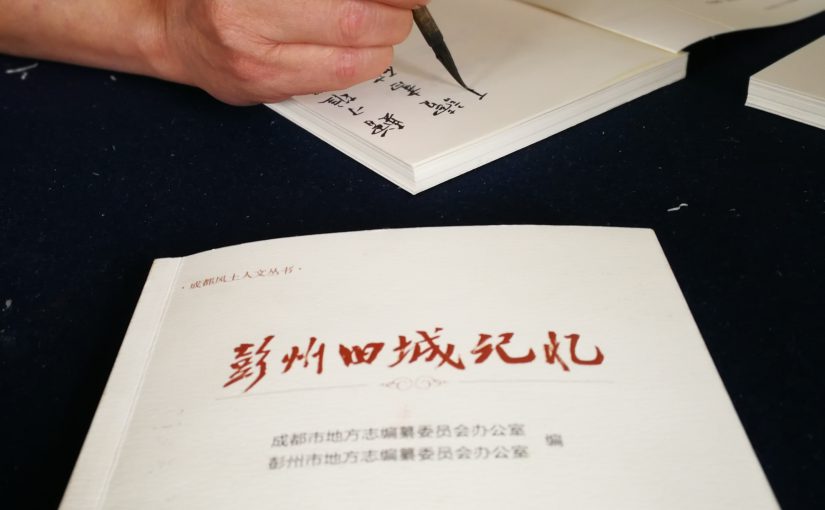 ·成都风土人文丛书·
彭州旧城记忆
成都市地方志编纂委员会办公室
彭州市地方志编纂委员会办公室 编